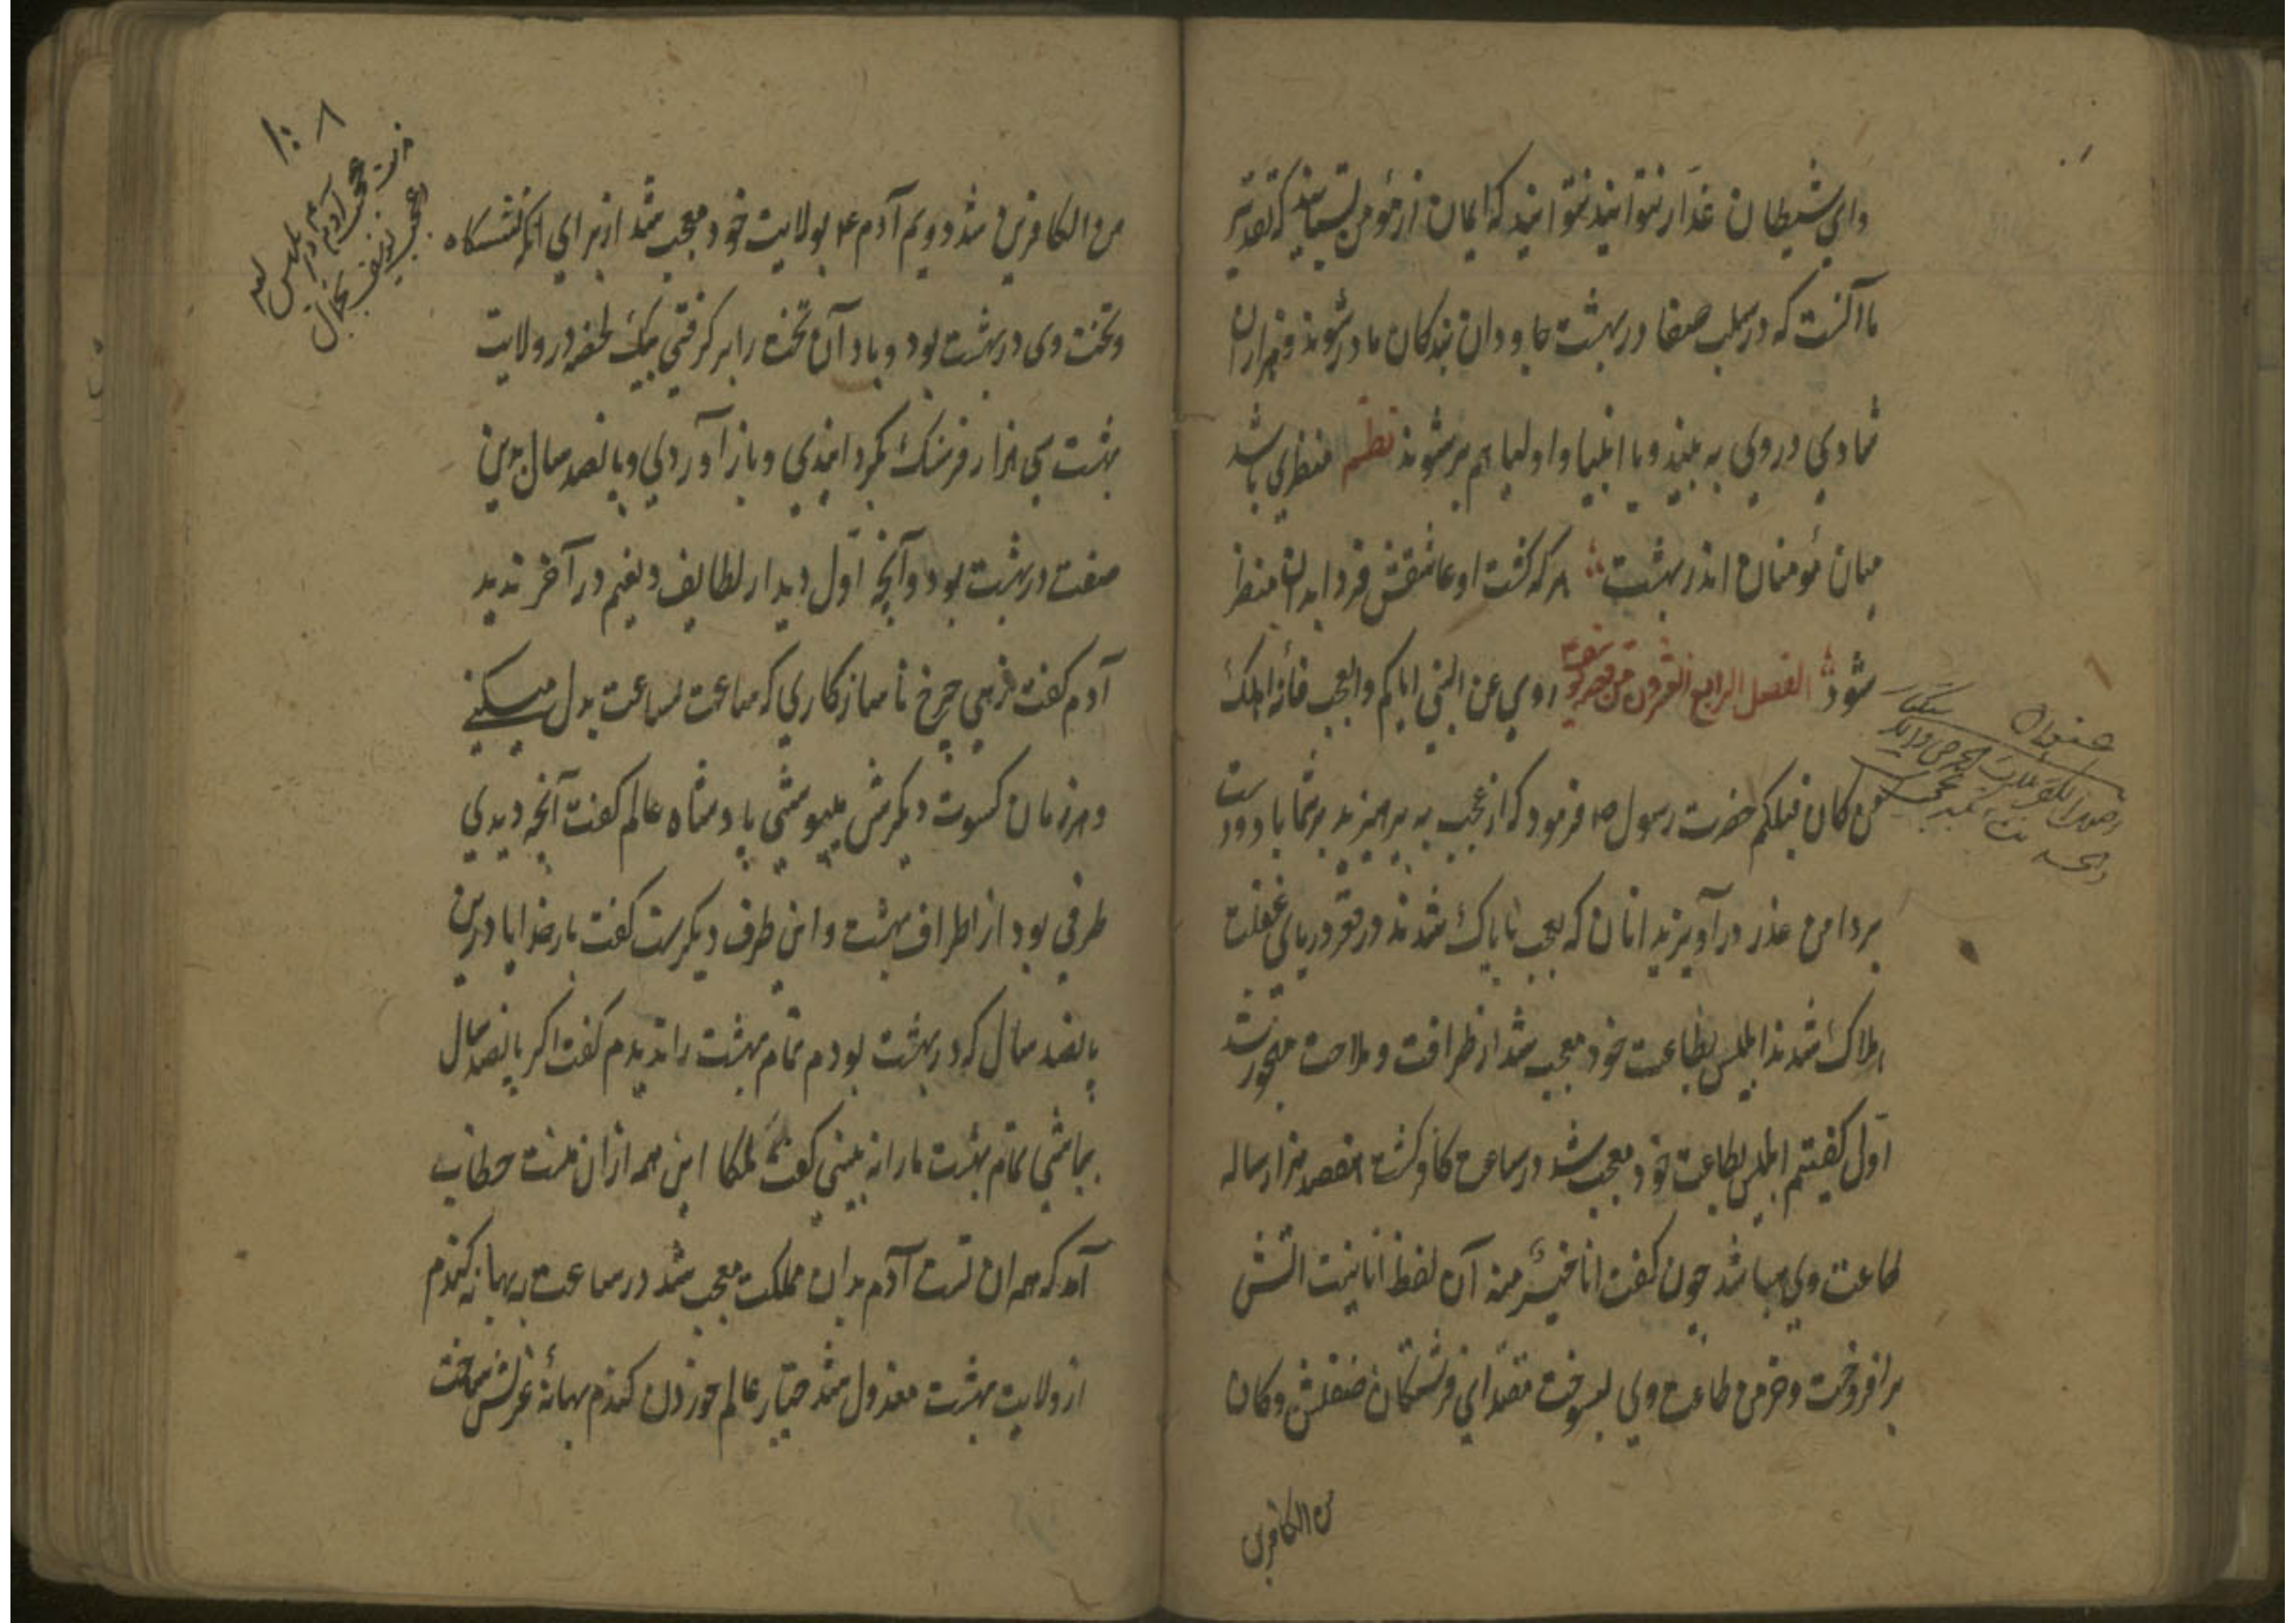 وای شیطان غدار نتوانید نتوانید که ایمان از مومن بستانید که تقدیر
ما آنست که در سلب صفا در بهشت جاودان بندگان ما در شوند و هزاران
شادی در وی به بینند و با انبیا و اولیا هم بر شوند نظم منظری باشد
میان مؤمنان اندر بهشت هر که گشت او عاشقش فردا بدان منظر
شود الفصل الرابع العشرون من روی عن النبی ایاکم والعجب فانه اهلک
من کان قبلکم حضرت رسول ص فرمود که از عجب به پرهیزید بر شما باد دست
بر دامن عذر در آویزید انان که بعجب ناپاک شدند در قعر دریای غفلت
هلاک شدند ابلیس بطاعت خود معجب شد از ظرافت و ملاحت مهجور شد
اول گفتیم ابلیس بطاعت خود معجب شد در ساعت کافر گشت هفصد هزار ساله
طاعت وی هبا شد چون گفت انا خیر منه آن لفظ انانیت اتش
بر افروخت و خرمن طاعت وی بسوخت مقتدای فرشتگان و کان
من الکافرین
۱۰۸
من الکافرین شد دویم آدم ۴ بولایت خود معجب شد از برای انکه
و تخت وی در بهشت بود و باد آن تخت را بر گرفتی بیک لحظه در ولایت
بهشت سی هزار فرسنک بگردانیدی و باز آوردی و پانصد سال بدین
صفت در بهشت بود و آنچه اول دید از لطایف و نعیم در آخر ندید
آدم گفت زهی چرخ ناسازکاری که ساعت بساعت بدل میکنی
و هر زمان کسوت دیگرش میپوشی پادشاه عالم گفت آنچه دیدی
طرفی بود از اطراف بهشت و این طرف دیگرست گفت بار خدایا درین
پانصد سال که در بهشت بودم تمام بهشت را ندیدم گفت اگر پانصد سال
بباشی تمام بهشت ما را نه بینی گفت ملکا این همه از ان منست خطاب
آمد که همه ان تست آدم بدان مملکت معجب شد در ساعت به بهانه گندم
از ولایت بهشت معزول شد جبار عالم خوردن گندم بهانه عزلش ساخت